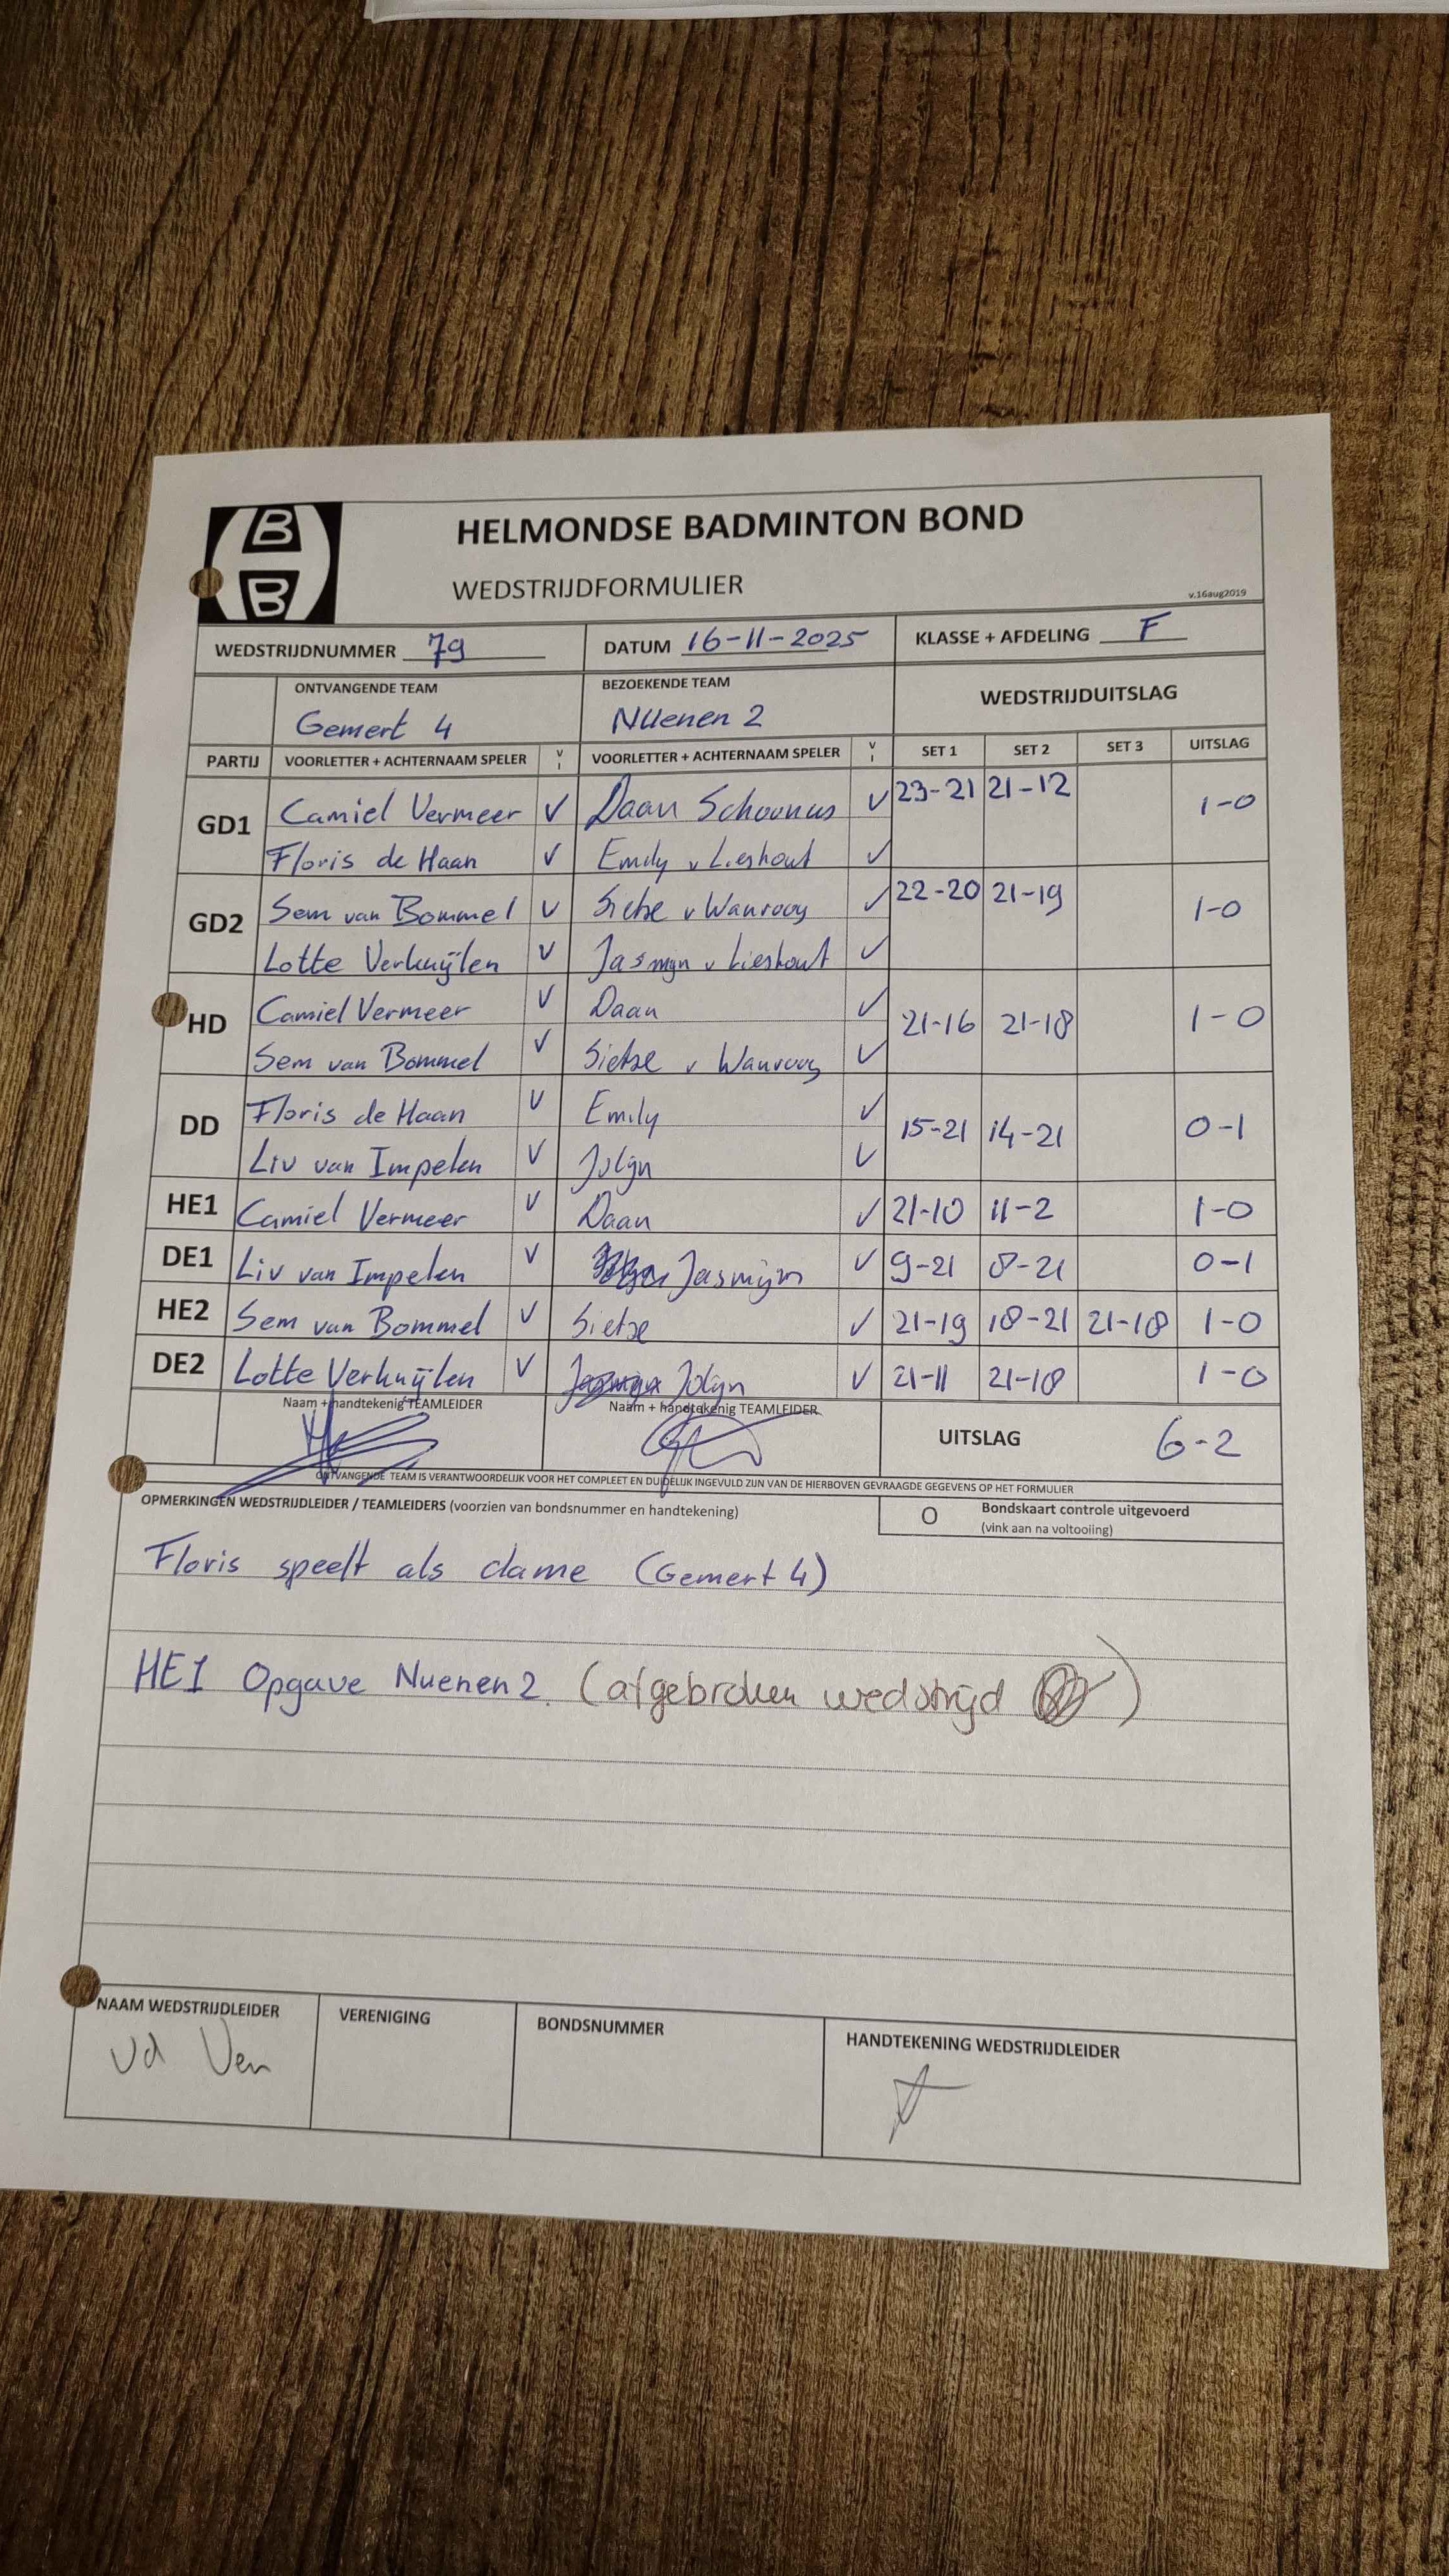 B
B
HELMONDSE BADMINTON BOND
WEDSTRIJDFORMULIER
v.16aug2019
WEDSTRIJDNUMMER 79 DATUM 16-11-2025 KLASSE + AFDELING F
ONTVANGENDE TEAM BEZOEKENDE TEAM WEDSTRIJDUITSLAG
Gemert 4 Nuenen 2
PARTIJ VOORLETTER + ACHTERNAAM SPELER V I VOORLETTER + ACHTERNAAM SPELER V I SET 1 SET 2 SET 3 UITSLAG
GD1 Camiel Vermeer V Daan Schoonus V 23-21 21-12 1-0
Floris de Haan V Emily v Lieshout V
GD2 Sem van Bommel V Sietse v Wanrooy V 22-20 21-19 1-0
Lotte Verkuijlen V Jasmijn v Lieshout V
HD Camiel Vermeer V Daan V 21-16 21-18 1-0
Sem van Bommel V Sietse v Wanrooy V
DD Floris de Haan V Emily V 15-21 14-21 0-1
Liv van Impelen V Jolijn V
HE1 Camiel Vermeer V Daan V 21-10 11-2 1-0
DE1 Liv van Impelen V Jasmijn V 9-21 8-21 0-1
HE2 Sem van Bommel V Sietse V 21-19 18-21 21-18 1-0
DE2 Lotte Verkuijlen V Jasmijn Jolijn V 21-11 21-18 1-0
Naam + handtekenig TEAMLEIDER Naam + handtekenig TEAMLEIDER UITSLAG 6-2
ONTVANGENDE TEAM IS VERANTWOORDELIJK VOOR HET COMPLEET EN DUIDELIJK INGEVULD ZIJN VAN DE HIERBOVEN GEVRAAGDE GEGEVENS OP HET FORMULIER
OPMERKINGEN WEDSTRIJDLEIDER / TEAMLEIDERS (voorzien van bondsnummer en handtekening) O Bondskaart controle uitgevoerd
(vink aan na voltooiing)
Floris speelt als dame (Gemert 4)
HE1 Opgave Nuenen 2. (afgebroken wedstrijd )
NAAM WEDSTRIJDLEIDER VERENIGING BONDSNUMMER HANDTEKENING WEDSTRIJDLEIDER
vd Ven